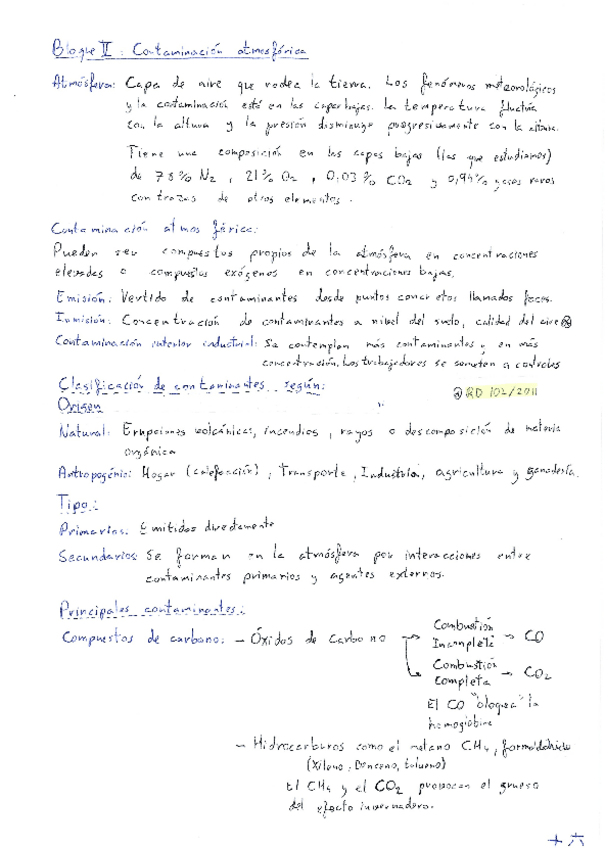 Bloque II: Contaminación atmosférica
Atmósfera: Capa de aire que rodea la tierra. Los fenómenos meteorológicos
y la contaminación está en las capas bajas. La temperatura fluctúa
con la altura y la presión disminuye progresivamente con la altura.
Tiene una composición en las capas bajas (las que estudiamos)
de 78% N2, 21% O2, 0,03% CO2 y 0,94% gases raros
con trazas de otros elementos.
Contaminación atmosférica:
Pueden ser compuestos propios de la atmósfera en concentraciones
elevadas o compuestos exógenos en concentraciones bajas.
Emisión: Vertido de contaminantes desde puntos concretos llamados focos.
Inmisión: Concentración de contaminantes a nivel del suelo, calidad del aire @
Contaminación interior industrial: Se contemplan más contaminantes y en más
concentración. Los trabajadores se someten a controles
Clasificación de contaminantes según:
@ RD 102/2011
Origen
Natural: Erupciones volcánicas, incendios, rayos o descomposición de materia
orgánica
Antropogénio: Hogar (calefacción), Transporte, Industria, agricultura y ganadería.
Tipo:
Primarios: Emitidos directamente
Secundarios: Se forman en la atmósfera por interacciones entre
contaminantes primarios y agentes externos.
Principales contaminantes:
Compuestos de carbono: - Óxidos de Carbono → Combustión Incompleta → CO
→ Combustión completa → CO2
El CO "bloquea" la
hemoglobina
- Hidrocarburos como el metano CH4, formaldehido
(Xileno, Benceno, tolueno)
El CH4 y el CO2 provocan el grueso
del efecto invernadero.